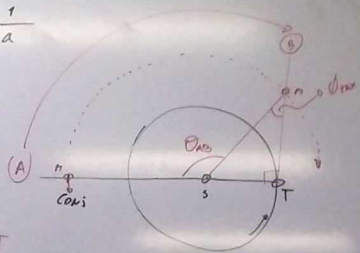 1
a
B
M
Φmax
θAB
A
M
Conj
S
T